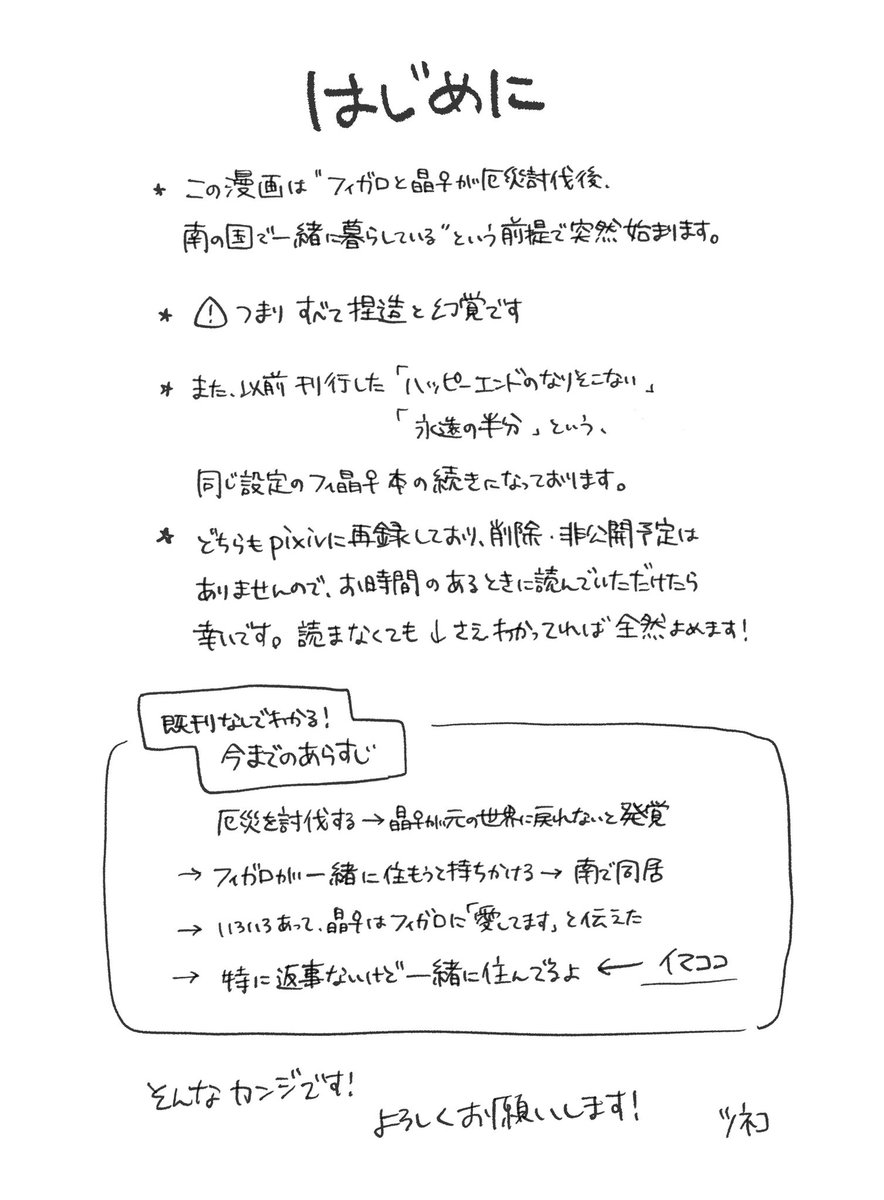 はじめに
* この漫画は"フィガロと晶♀が厄災討伐後、
南の国で一緒に暮らしている"という前提で突然始まります。
* ⚠ つまり すべて捏造と幻覚です
* また、以前刊行した「ハッピーエンドのなりそこない」
「永遠の半分」という、
同じ設定のフィ晶♀本の続きになっております。
* どちらもpixivに再録しており、削除・非公開予定は
ありませんので、お時間のあるときに読んでいただけたら
幸いです。読まなくても↓さえわかってれば全然よめます!
既刊なしでわかる!
今までのあらすじ
厄災を討伐する→晶♀が元の世界に戻れないと発覚
→ フィガロが一緒に住もうと持ちかける→ 南で同居
→ いろいろあって、晶♀はフィガロに「愛してます」と伝えた
→ 特に返事ないけど一緒に住んでるよ ← イマココ
そんなカンジです!
よろしくお願いします!
ツネコ